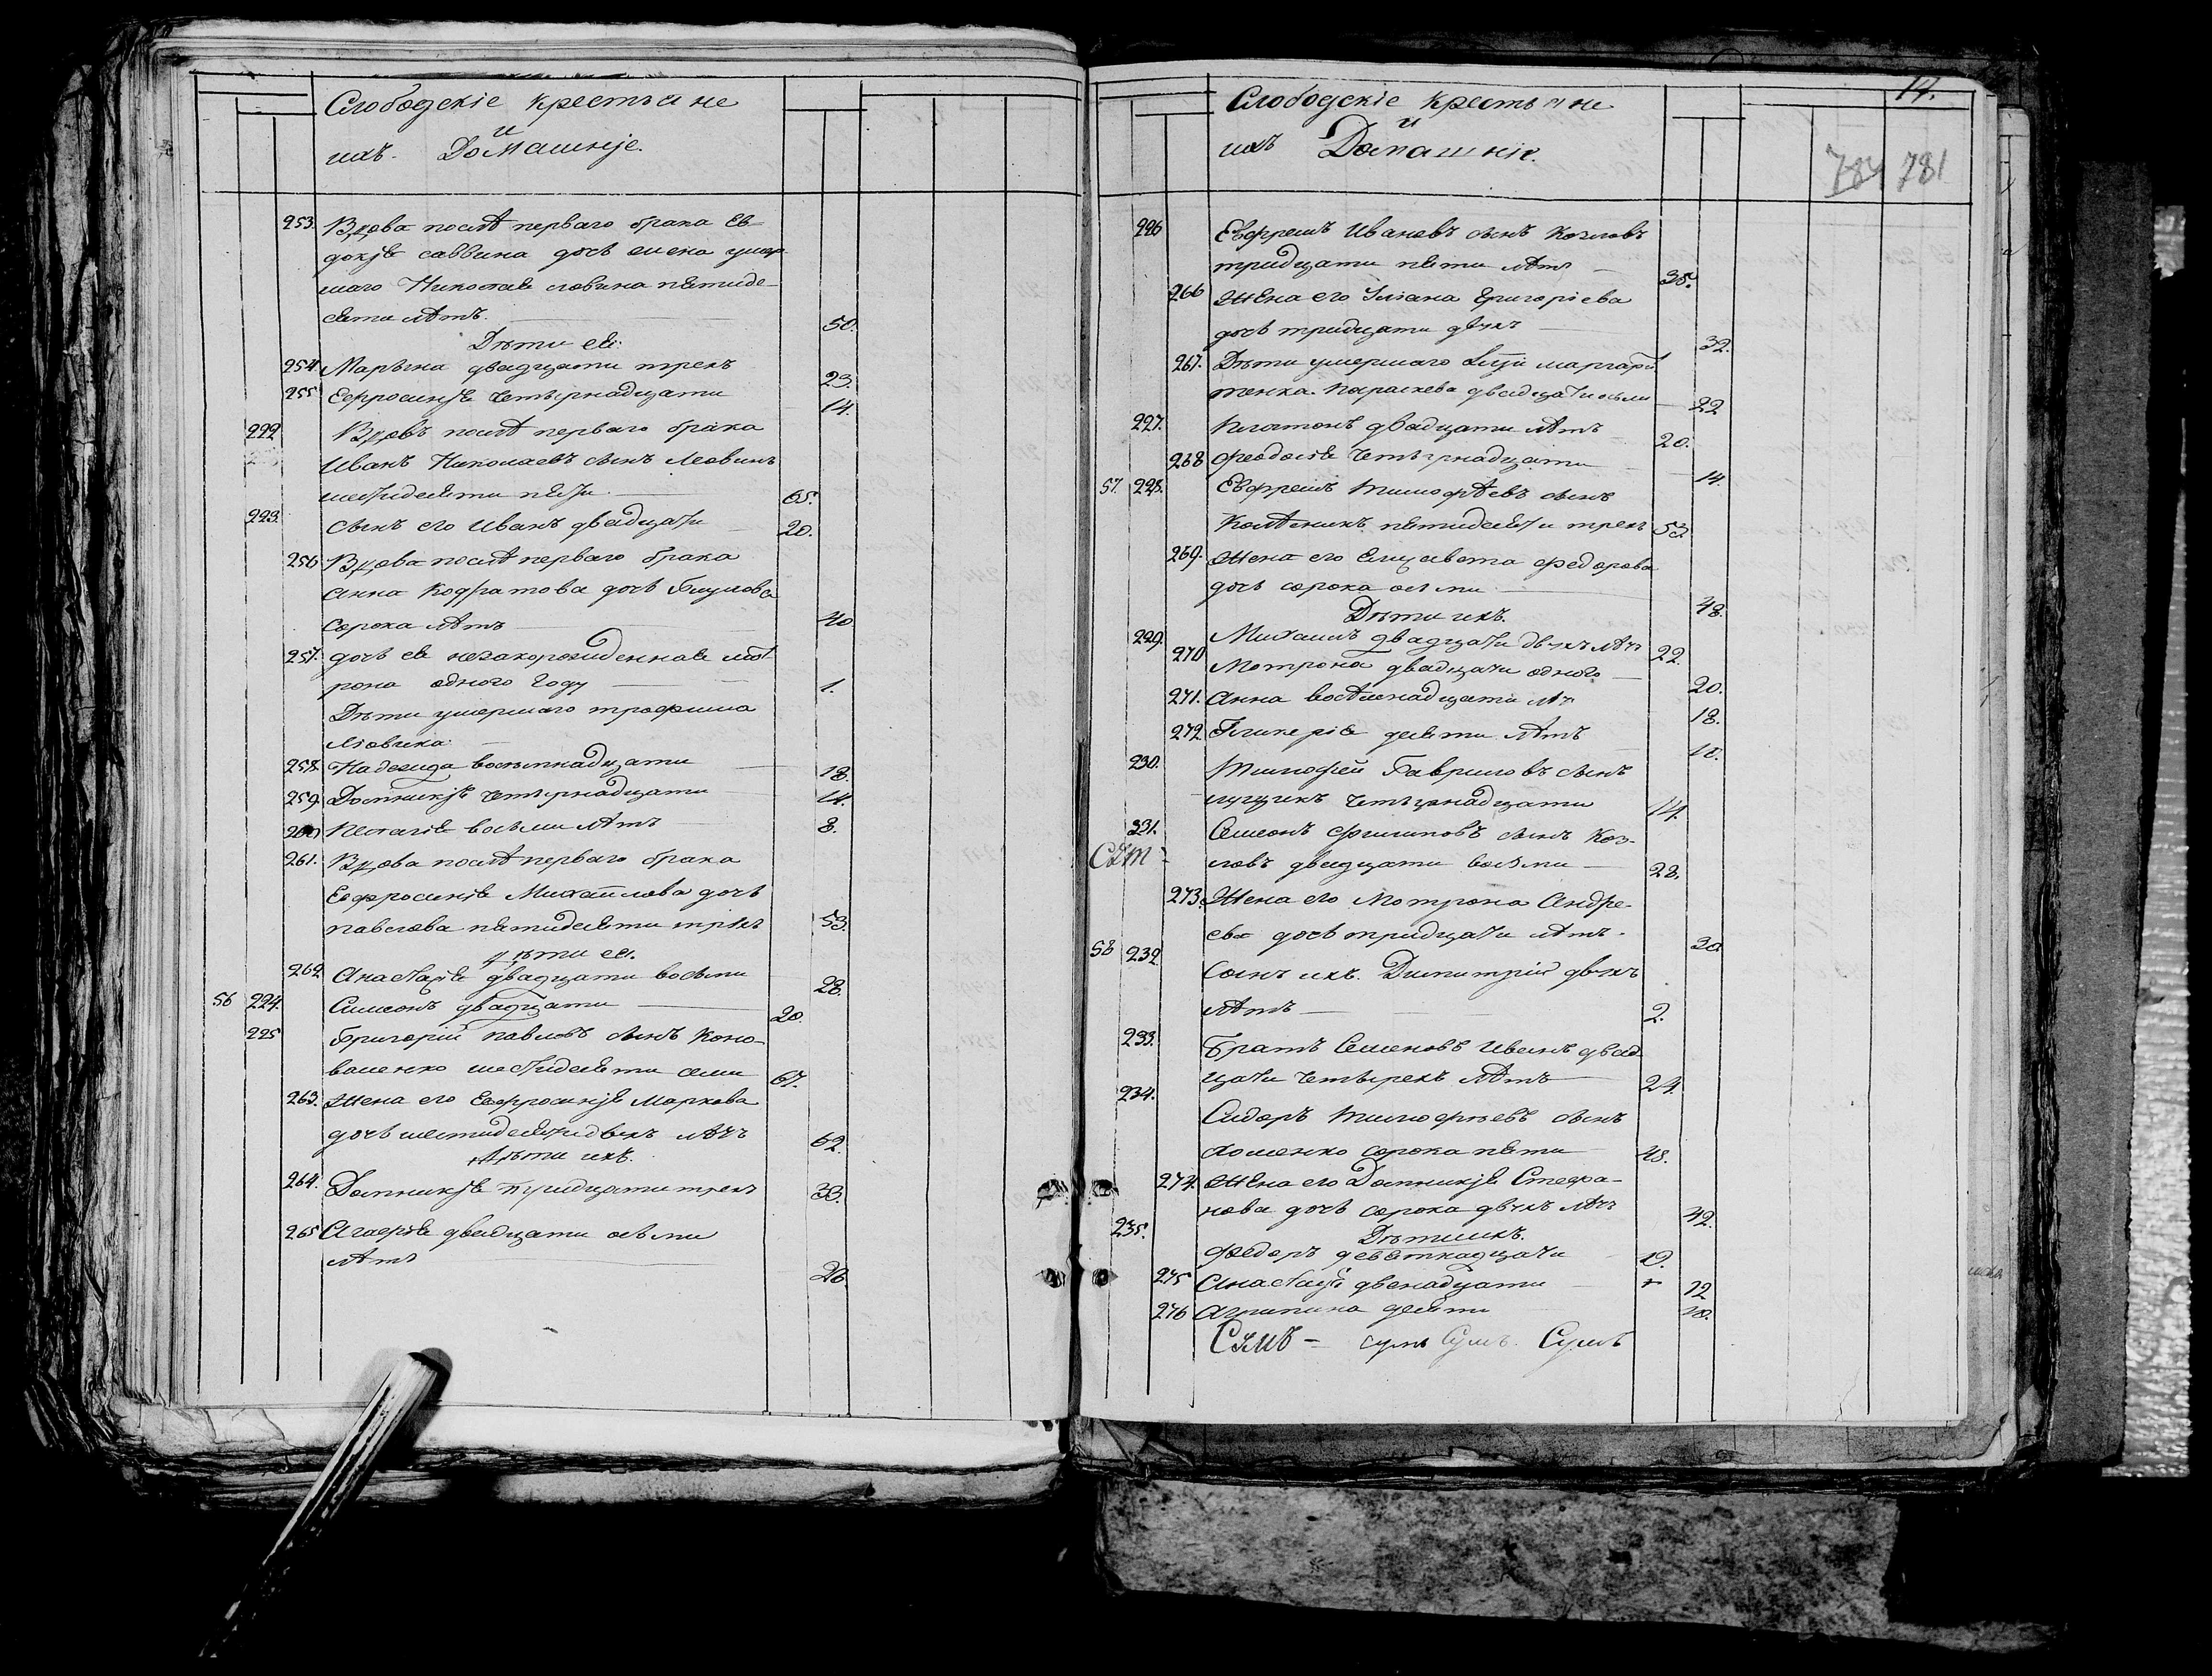 Слободскіе крестьяне
и
ихъ. Домашніе.
253. Вдова послѣ перваго брака Ев
докіѧ саввина дочь жена умер
шаго Николаѧ ловина пѧтиде-
сѧти лѣтъ. 50.
Дѣти еѧ:
254 Марѣна двадцати трехъ 23.
255 Ефросиніѧ четырнадцати 14.
222 Вдовъ послѣ перваго брака
Иванъ Николаевъ сынъ Леовинъ
шестидесѧти пѧти 65.
223. сынъ его Иванъ двадцати 20.
256 Вдова послѣ перваго брака
анна Кодратова дочь
сорока лѣтъ 40
257. дочь еѧ незакорожденнаѧ мот
рона одного году 1.
Дѣти умершаго трофима
258. Надежда восѣмнадцати 18.
259. Домникіѧ четырнадцати 14.
260 Пелагіѧ восьми лѣтъ 8.
261. Вдова послѣ перваго брака
Ефросиніѧ Михайлова дочь
павлова пѧтидесѧти трехъ 53.
дѣти еѧ.
262 Анастасіѧ двадцати восьми 28.
56 224. Симеонъ двадцати 20.
225 Григорій павловъ сынъ Коно-
валенко шестидесѧти семи 67.
263. Жена его Ефросиніѧ Маркова
дочь шестидесѧти двухъ лѣтъ 62.
Дѣти ихъ.
264. Домникіѧ тридцати трехъ 33.
265 Агафіѧ двадцати осьми
лѣтъ 28.
14.
Слободскіе крестьяне
и
ихъ Домашніе.
784 781
226 Евфремъ Ивановъ сынъ Козловъ
тридцати пѧти лѣтъ 35.
266 Жена его Григоріева
дочь тридцати двухъ 32.
267. Дѣти умершаго маргари
тенка. Параскева двадцати 22
227. Платонъ двадцати лѣтъ 20.
268 феодосіѧ четырнадцати 14.
57. 228. Евфремъ Тимофѣевъ сынъ
Колѣсникъ пѧтидесѧти трехъ 53
269. Жена его Елисавета федорова
дочь сорока осьми 48.
Дѣти ихъ.
229. Михаилъ двадцати двухъ лѣтъ 22.
270 Мотрона двадцати одного 20.
271. Анна восѣмнадцати лѣ 18.
272. Гликеріѧ десѧти лѣтъ 10.
230. Тимофей Гавриловъ сынъ
четырнадцати 14.
231. Симеонъ Филиповъ сынъ Коз-
ловъ двадцати восьми 28.
273. Жена его Мотрона Андре-
ева дочь тридцати лѣтъ. 30
58 232 Сынъ ихъ. Димитрій двухъ
лѣтъ 2.
233. Братъ Семеновъ Иванъ двад
цати четырехъ лѣтъ 24.
234. Сидоръ Тимофѣевъ сынъ
хоменко сорока пѧти 48.
274. Жена его Домникіѧ Стефа-
нова дочь сорока двухъ лѣтъ 42.
Дѣти ихъ.
235. Федоръ девѧтнадцати 19.
275 Анастасіѧ двенадцати 12
276 агрипина десѧти 10.